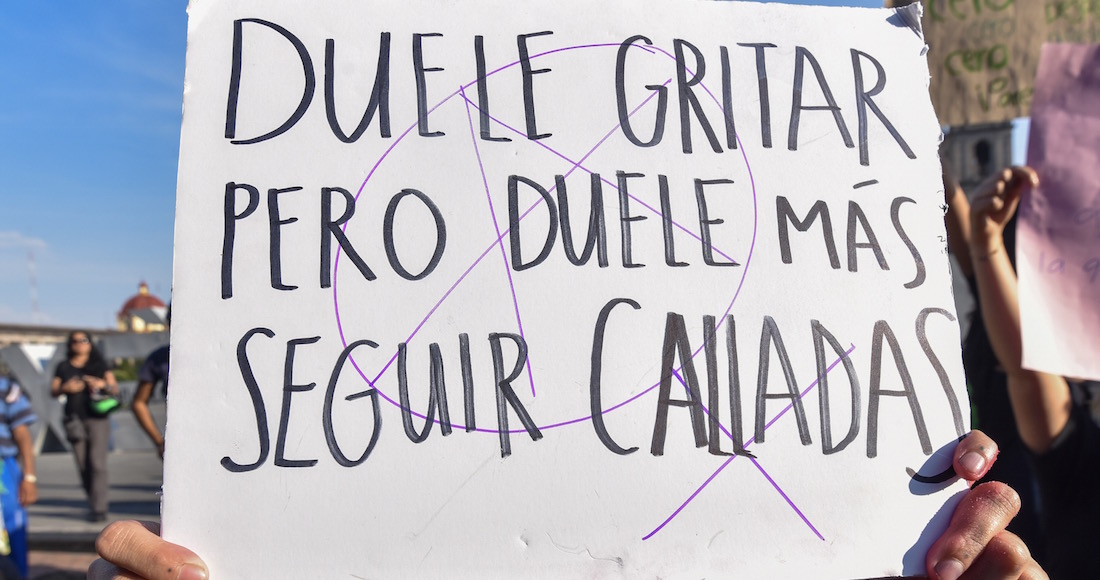 DUELE GRITAR
PERO DUELE MÁS
SEGUIR CALLADAS
cero